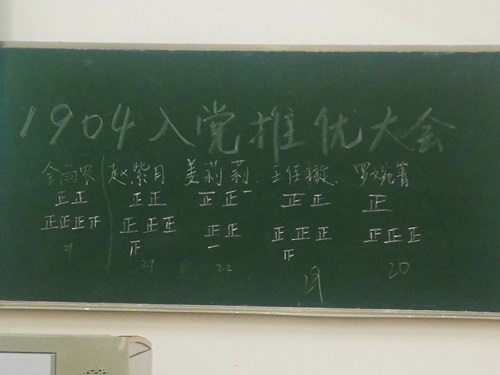 1904入党推优大会
赵紫月 姜莉莉 王佳璇 罗婉菁
正正 正正 正正一 正正 正
正正正 正正正 正正 正正正 正正正
一
29 22 29 20